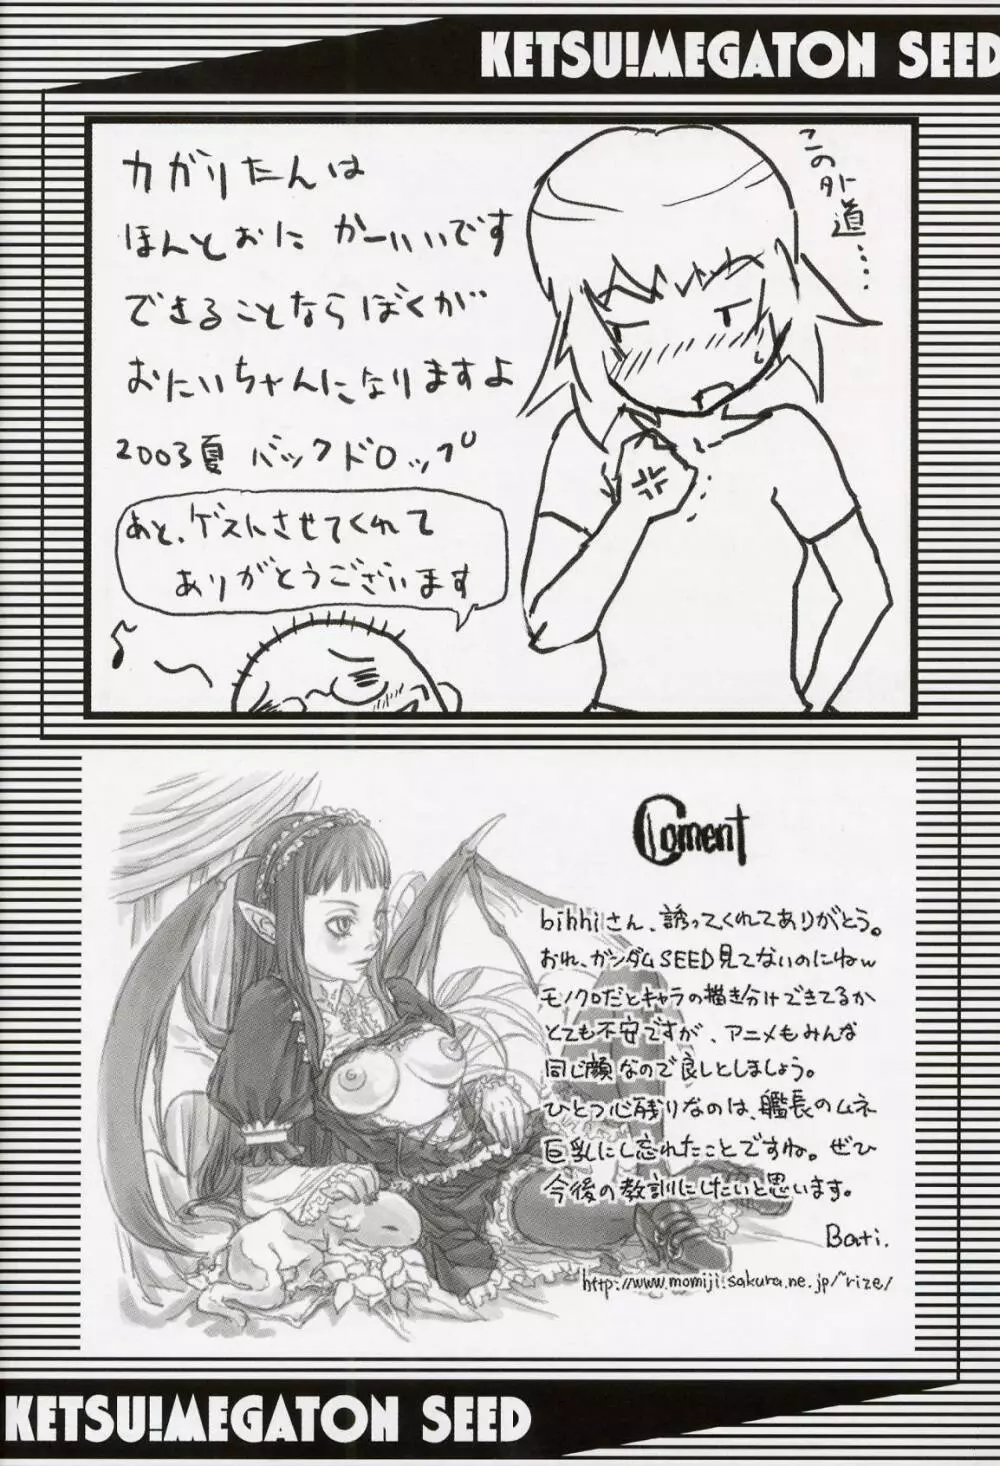 KETSU!MEGATON SEED
カガリたんは
ほんとおに かーいいです
できることならぼくが
おにいちゃんになりますよ
2003夏 バックドロップ
この外道....
あと、ゲストにさせてくれて
ありがとうございます
Coment
bihhiさん、誘ってくれてありがとう。
おれ、ガンダムSEED見てないのにねw
モノクロだとキャラの描き分けできてるか
とても不安ですが、アニメもみんな
同じ顔なので良しとしましょう。
ひとつ心残りなのは、艦長のムネ
巨乳にし忘れたことですね。ぜひ
今後の教訓にしたいと思います。
Bati.
http://www.momiji.sakura.ne.jp/~rize/
KETSU!MEGATON SEED